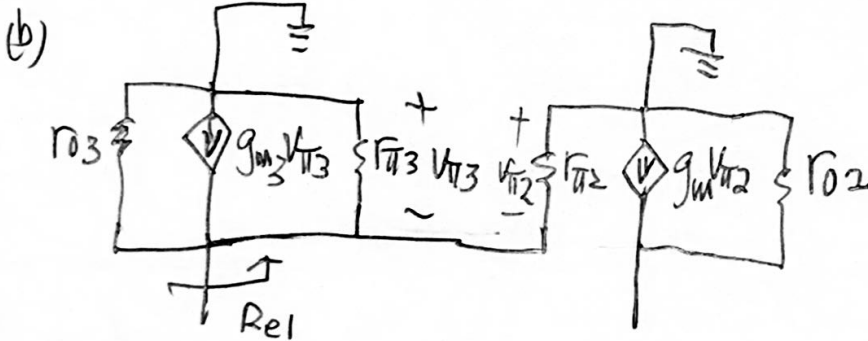 (b)
ro3
gm3Vπ3
rπ3
+
Vπ3
~
+
Vπ2
-
rπ2
gmVπ2
ro2
Re1